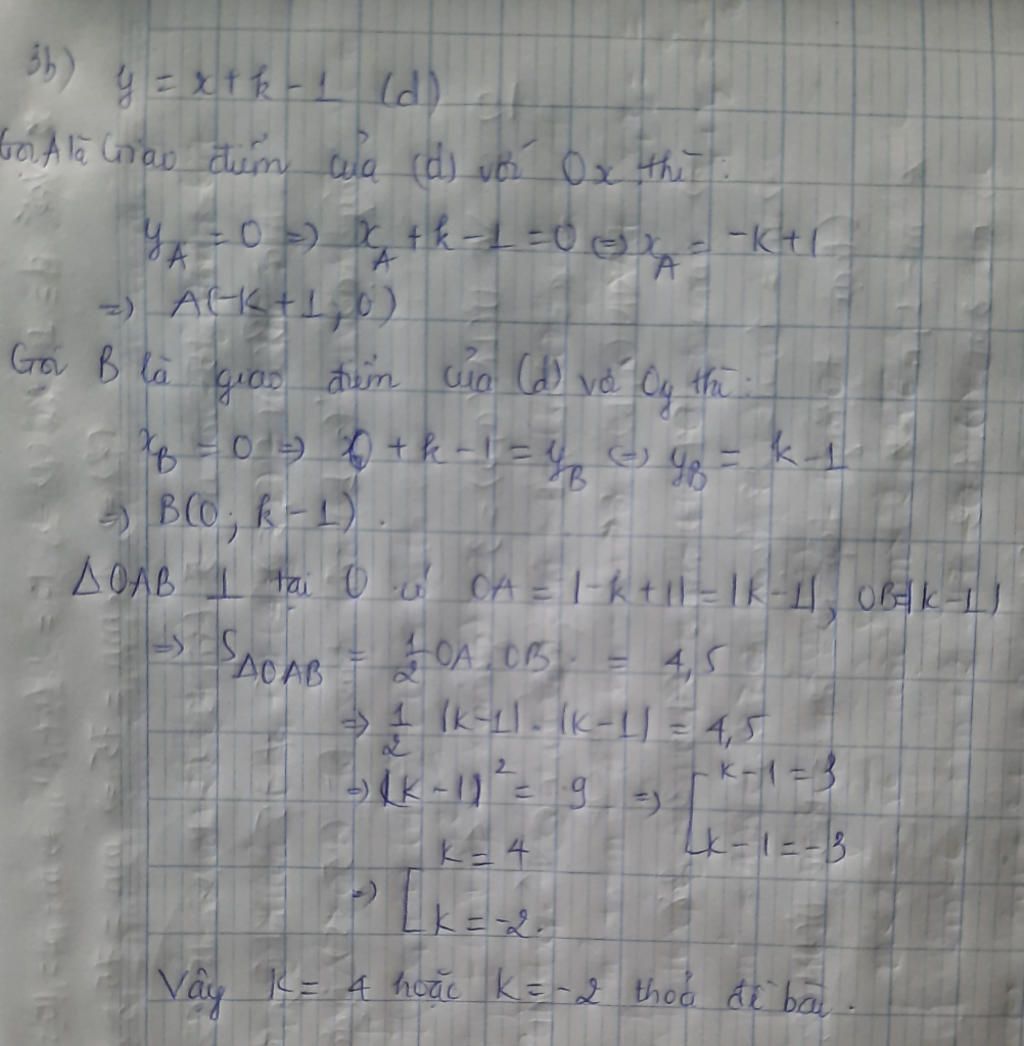 3b) y = x + k - 1 (d)
Gọi A là Giao điểm của (d) với Ox thì:
y_A = 0 => x_A + k - 1 = 0 <=> x_A = -k + 1
=> A(-k + 1, 0)
Gọi B là giao điểm của (d) với Oy thì:
x_B = 0 => 0 + k - 1 = y_B <=> y_B = k - 1
=> B(0; k - 1).
ΔOAB ⊥ tại O có OA = |-k + 1| = |k - 1|, OB = |k - 1|
=> S_ΔOAB = 1/2 OA.OB. = 4,5
=> 1/2 |k - 1|.|k - 1| = 4,5
=> (k - 1)² = 9 => [ k - 1 = 3
k - 1 = -3
=> [ k = 4
k = -2.
Vậy k = 4 hoặc k = -2 thoả đề bài.